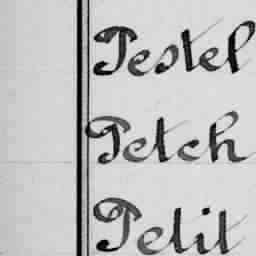 Pestel
Petch
Petit